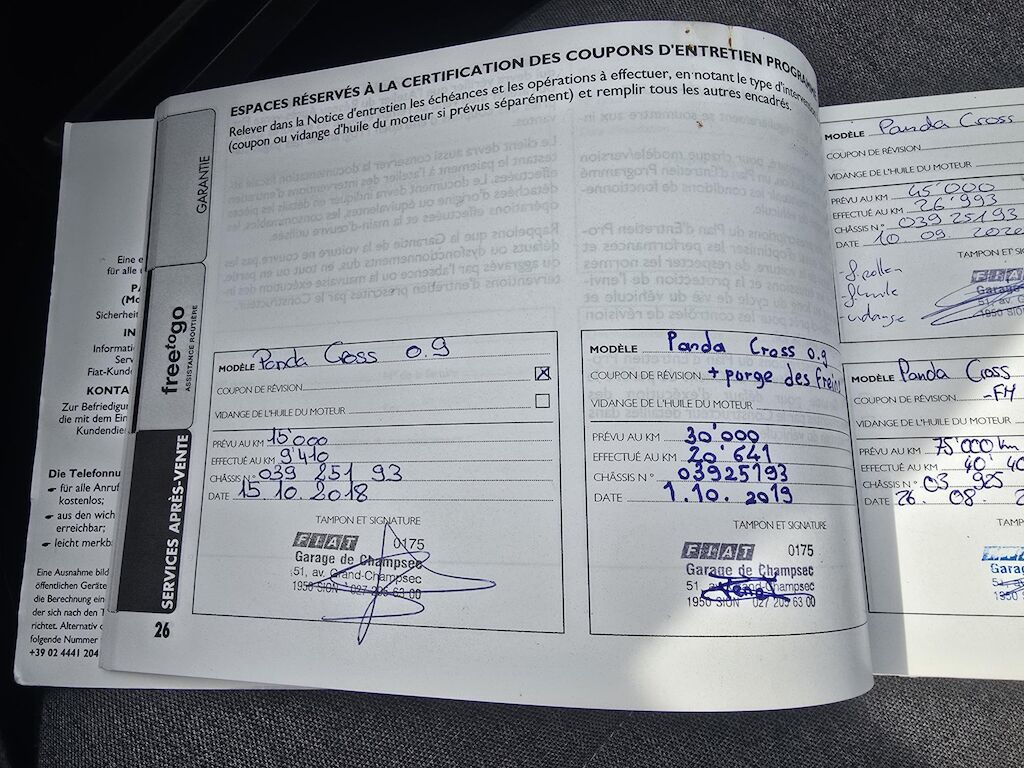 ESPACES RÉSERVÉS À LA CERTIFICATION DES COUPONS D'ENTRETIEN
Relever dans la Notice d'entretien les échéances et les opérations à effectuer, en notant le type
(coupon ou vidange d'huile du moteur si prévus séparément) et remplir tous les autres encadrés.
GARANTIE
freetogo
ASSISTANCE ROUTIÈRE
SERVICES APRÈS-VENTE
MODÈLE Panda Cross 0.9
COUPON DE RÉVISION
VIDANGE DE L'HUILE DU MOTEUR
PRÉVU AU KM 15'000
EFFECTUÉ AU KM 9'410
CHÂSSIS N° 039 251 93
DATE 15.10.2018
TAMPON ET SIGNATURE
FIAT 0175
Garage de Champsec
51, av. Grand-Champsec
1950 SION 027 205 63 00
26
MODÈLE Panda Cross 0.9
COUPON DE RÉVISION + purge des freins
VIDANGE DE L'HUILE DU MOTEUR
PRÉVU AU KM 30'000
EFFECTUÉ AU KM 20'641
CHÂSSIS N° 03925193
DATE 1.10.2019
TAMPON ET SIGNATURE
FIAT 0175
Garage de Champsec
51, av. Grand-Champsec
1950 SION 027 205 63 00
MODÈLE Panda Cross
COUPON DE RÉVISION
VIDANGE DE L'HUILE DU MOTEUR
PRÉVU AU KM 45'000
EFFECTUÉ AU KM 26'993
CHÂSSIS N° 03925193
DATE 10.09.2020
TAMPON ET
- f. pollen
- f. huile
- vidange
FIAT
Garage
51, av.
1950 SION
MODÈLE Panda Cross
COUPON DE RÉVISION -FH
VIDANGE DE L'HUILE DU MOTEUR
PRÉVU AU KM 75'000 km
EFFECTUÉ AU KM 40
CHÂSSIS N° 03 925
DATE 26. 08.
FIAT
Garag
51
1950 S
Eine
für alle
Sicherheit
Informati
Serv
Fiat-Kunde
KONTA
Zur Befriedigun
die mit dem Ein
Kundendie
Die Telefonnu
für alle Anruf
kostenlos;
aus den wich
erreichbar;
leicht merkb
Eine Ausnahme bild
öffentlichen Geräte
die Berechnung eine
der sich nach den T
richtet. Alternativ
folgende Nummer
+39 02 4441 204